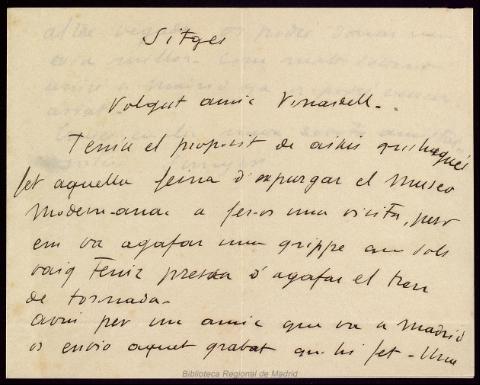 Sitges
Volgut amic Vinardell.
Tenia el proposit de així qu'hagués
fet aquella feina d'expurgar el museo
Modern-anar a fer-os una visita, pero
em va agafar una grippe que sols
vaig tenir pressa d'agafar el tren
de tornada-
avui per un amic que va a Madrid
os envio aquet grabat que hi fet-Una
Biblioteca Regional de Madrid